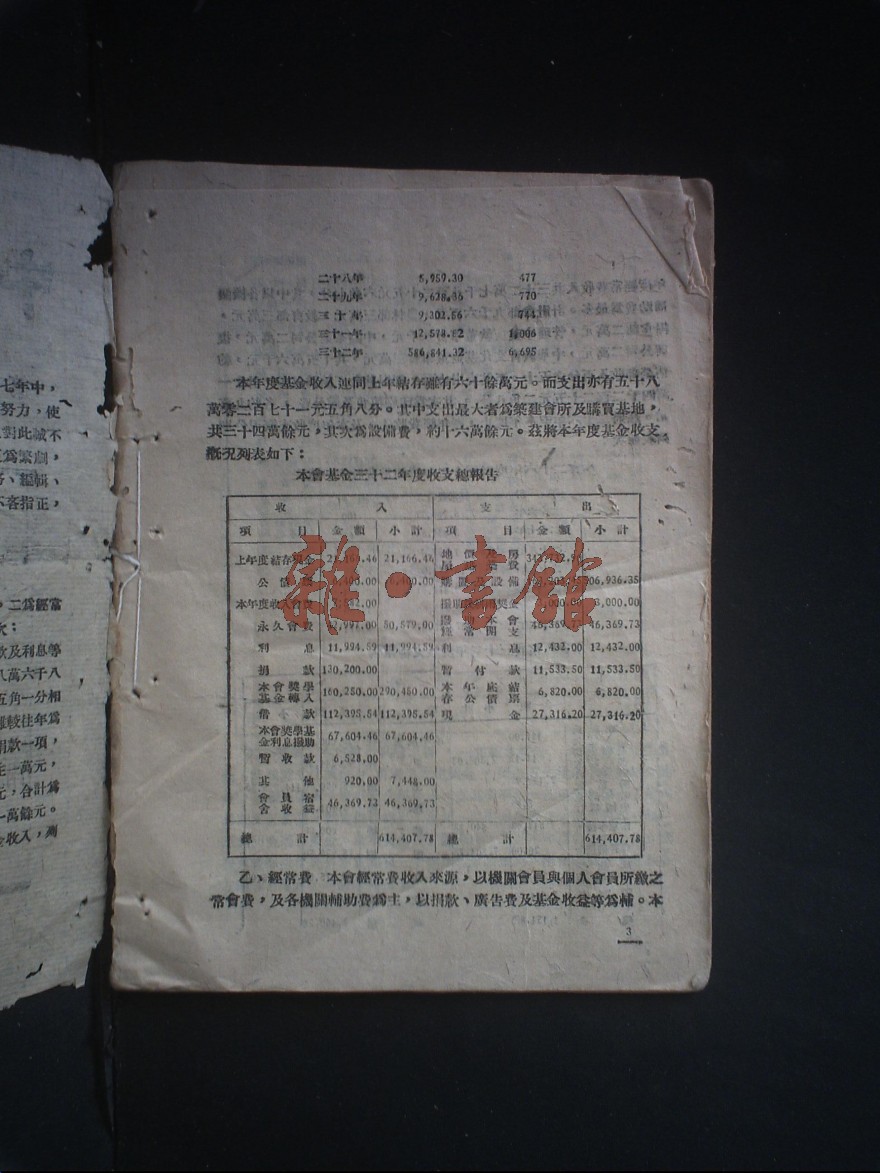 七年中，
努力，使
對此誠不
爲繁劇，
、編輯、
不吝指正，
，二爲經常
次：
款及利息等
八萬六千八
五角一分相
雖較往年爲
捐款一項，
一萬元，
元，合計爲
萬餘元。
金收入，則
二十八年 5,959.30 477
二十九年 9,638.86 770
三十年 9,302.56 744
三十一年 12,578.82 1,006
三十二年 586,841.32 6,695
本年度基金收入連同上年結存雖有六十餘萬元。而支出亦有五十八
萬零二百七十一元五角八分。其中支出最大者爲築建會所及購買基地，
共三十四萬餘元，其次爲設備費，約十六萬餘元。茲將本年度基金收支
概況列表如下：
本會基金三十二年度收支總報告
收 入 支 出
項 目 金額 小計 項 目 金額 小計
上年度結存現金 21,166.46 21,166.46 地價 房
公債 設備 506,936.35
本年度收入會費 3,000.00
永久會費 50,579.00 經常開支 46,369.73
利 息 11,994.59 11,994.59 利 息 12,432.00 12,432.00
捐 款 130,200.00 暫付款 11,533.50 11,533.50
本會獎學基金轉入 160,250.00 290,450.00 本年底結存公債票 6,820.00 6,820.00
借 款 112,395.54 112,395.54 現 金 27,316.20 27,316.20
本會獎學基金利息撥助 67,604.46 67,604.46
暫收款 6,528.00
其 他 920.00 7,448.00
會員宿舍收益 46,369.73 46,369.73
總 計 614,407.78 總 計 614,407.78
雜·書館
乙、經常費 本會經常費收入來源，以機關會員與個人會員所繳之
常會費，及各機關輔助費爲主，以捐款、廣告費及基金收益等爲輔。本
3